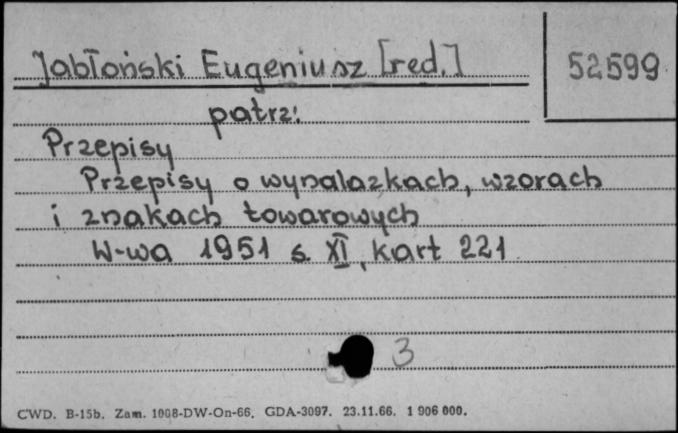 Jabłoński Eugeniusz [red.]
52599
patrz:
Przepisy
Przepisy o wynalazkach, wzorach
i znakach towarowych
W-wa 1951 s. XI, kart 221
3
CWD. B-15b. Zam. 1008-DW-On-66. GDA-3097. 23.11.66. 1 906 000.